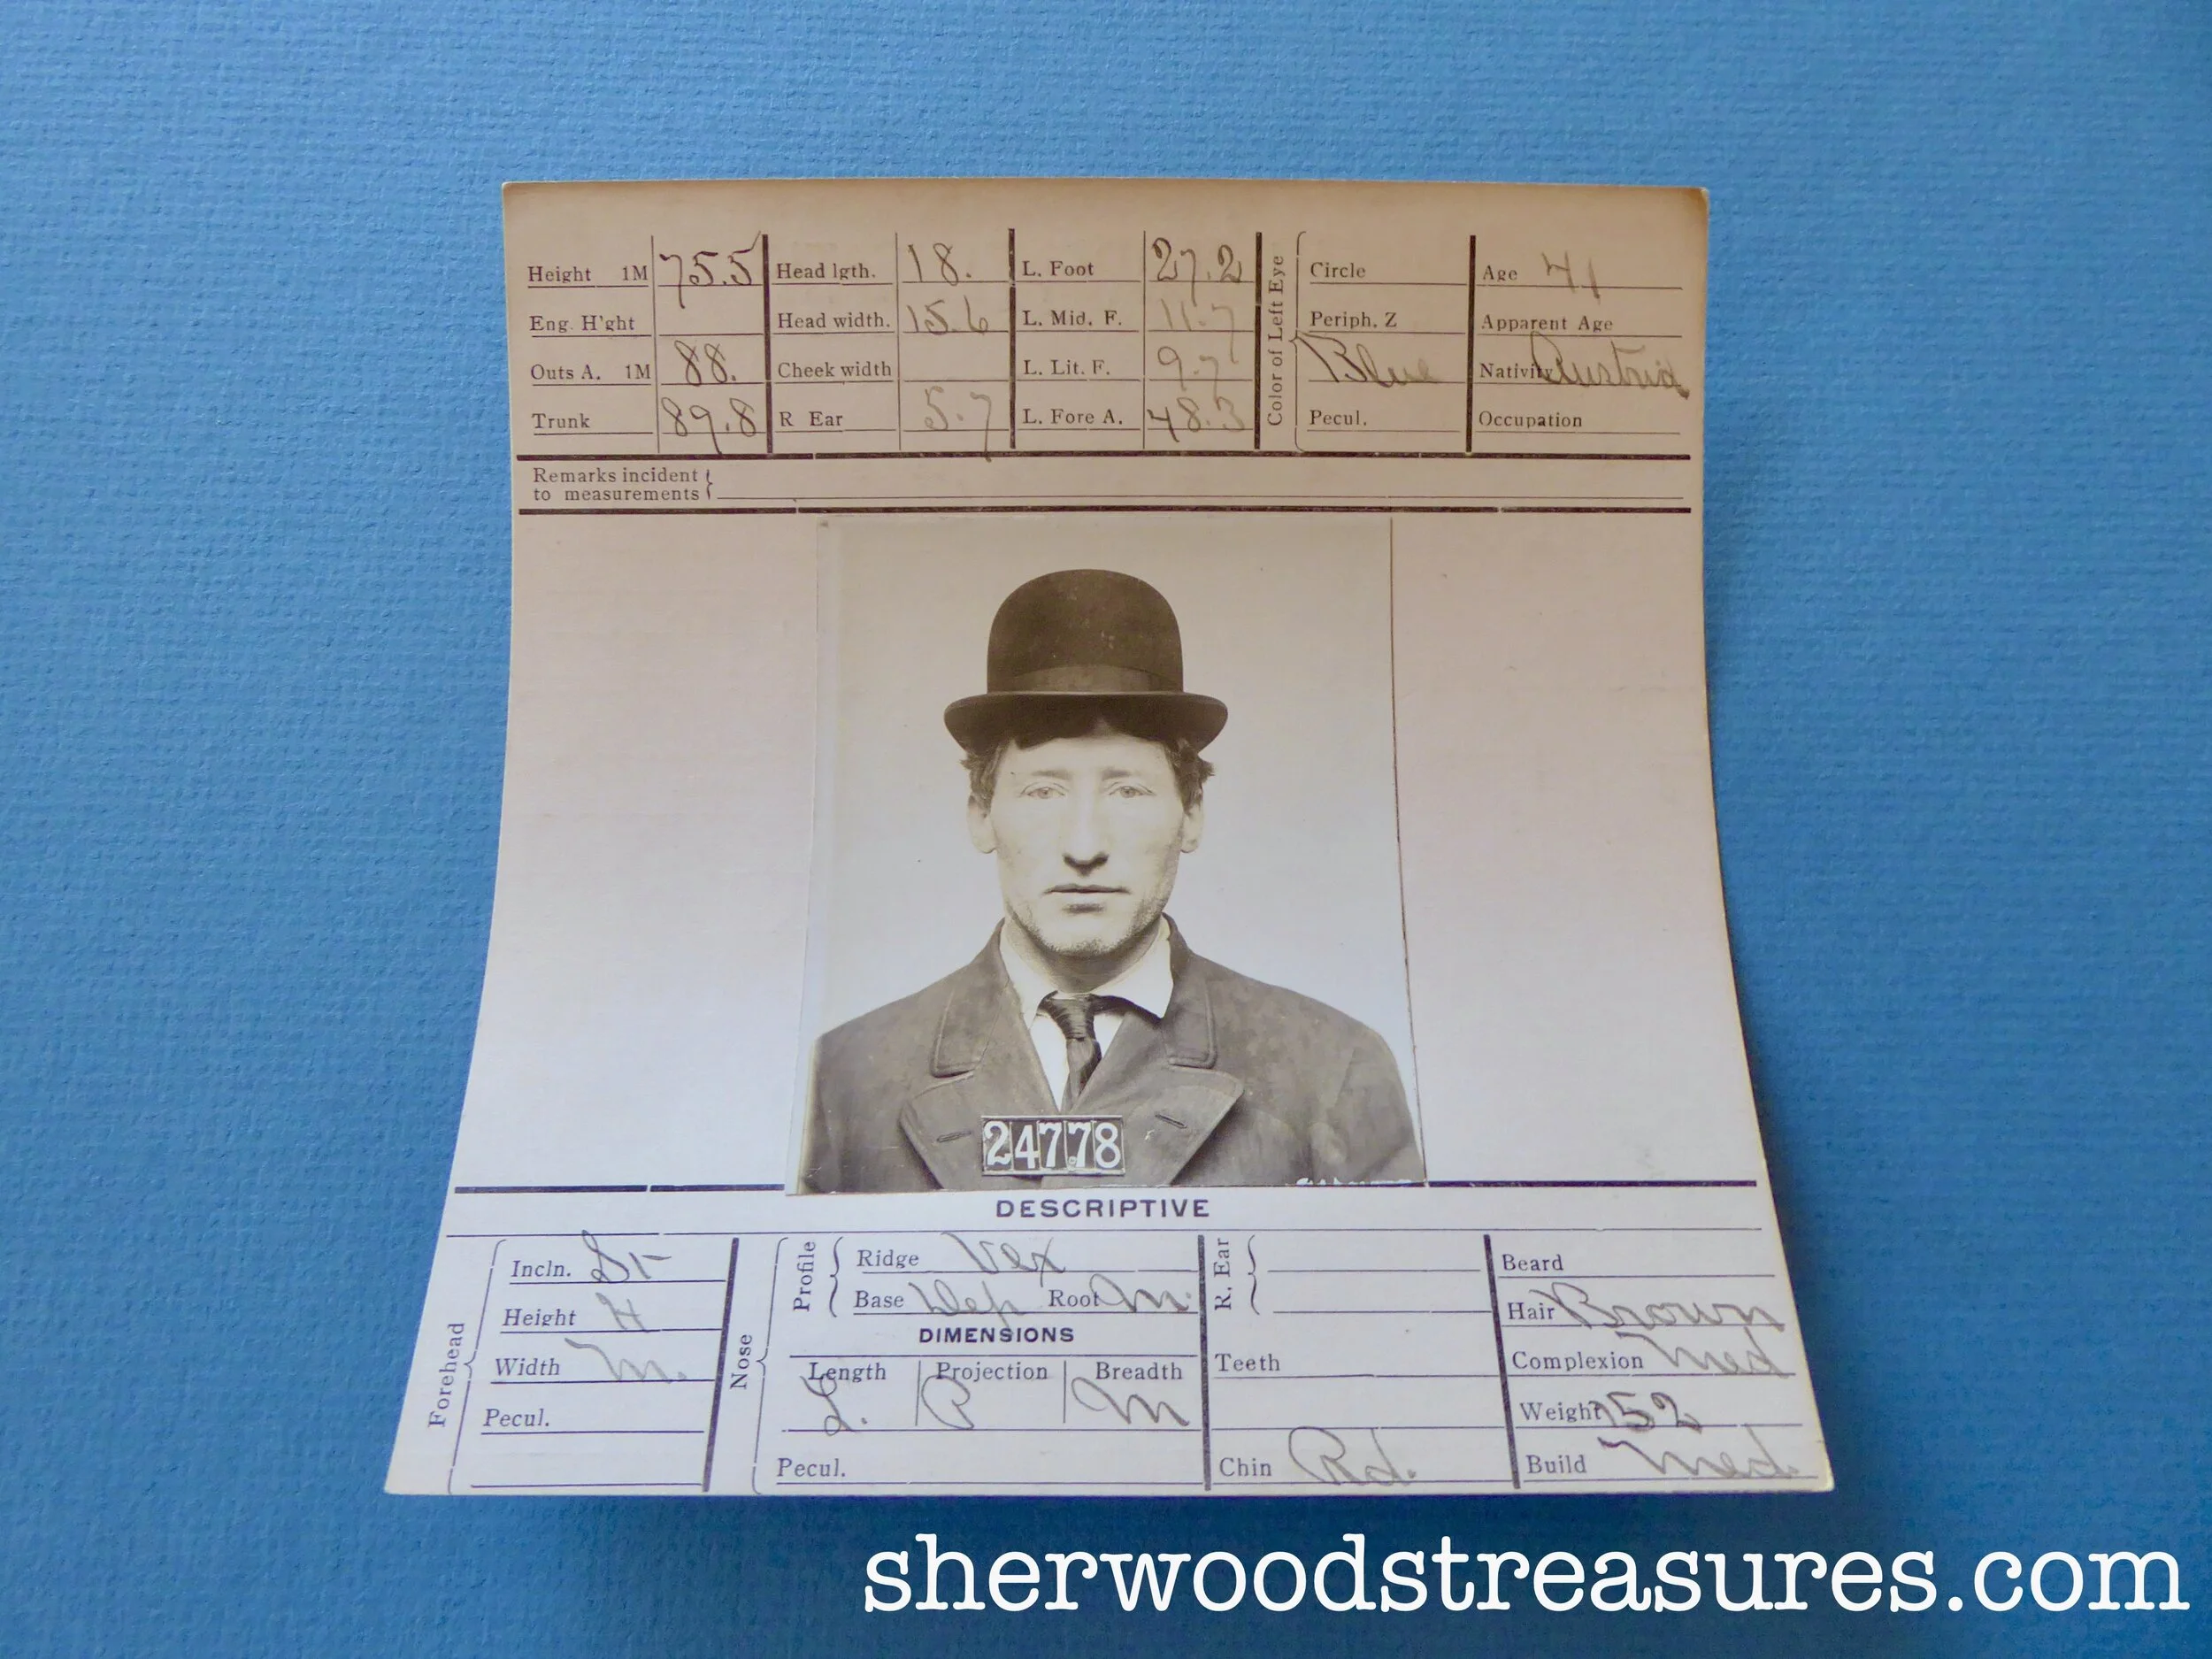 Height 1M 75.5 Head lgth. 18. L. Foot 27.2 Circle Age 41
Eng. H'ght Head width. 15.6 L. Mid. F. 11.7 Periph. Z Apparent Age
Outs A. 1M 88. Cheek width L. Lit. F. 9.7 Blue Nativity Austria
Trunk 89.8 R Ear 5.7 L. Fore A. 48.3 Pecul. Occupation
Color of Left Eye
Remarks incident
to measurements
24778
DESCRIPTIVE
Forehead
Incln. St
Height H
Width M.
Pecul.
Nose
Profile
Ridge Vex
Base Dep Root M.
DIMENSIONS
Length Projection Breadth
L. P M
Pecul.
R. Ear
Teeth
Chin Rd.
Beard
Hair Brown
Complexion Med
Weight 152
Build Med.
sherwoodstreasures.com